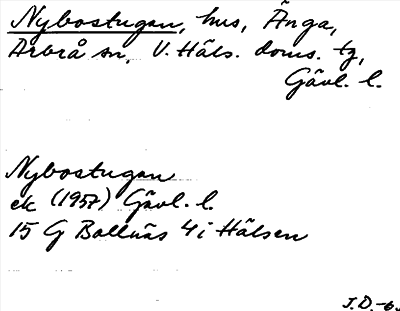 Nybostugan, hus, Änga,
Arbrå sn, V. Häls. doms. tg,
Gävl. l.
Nybostugan
ek (1957) Gävl. l.
15 G Bollnäs 4 i Hälsen
J.D.-6.